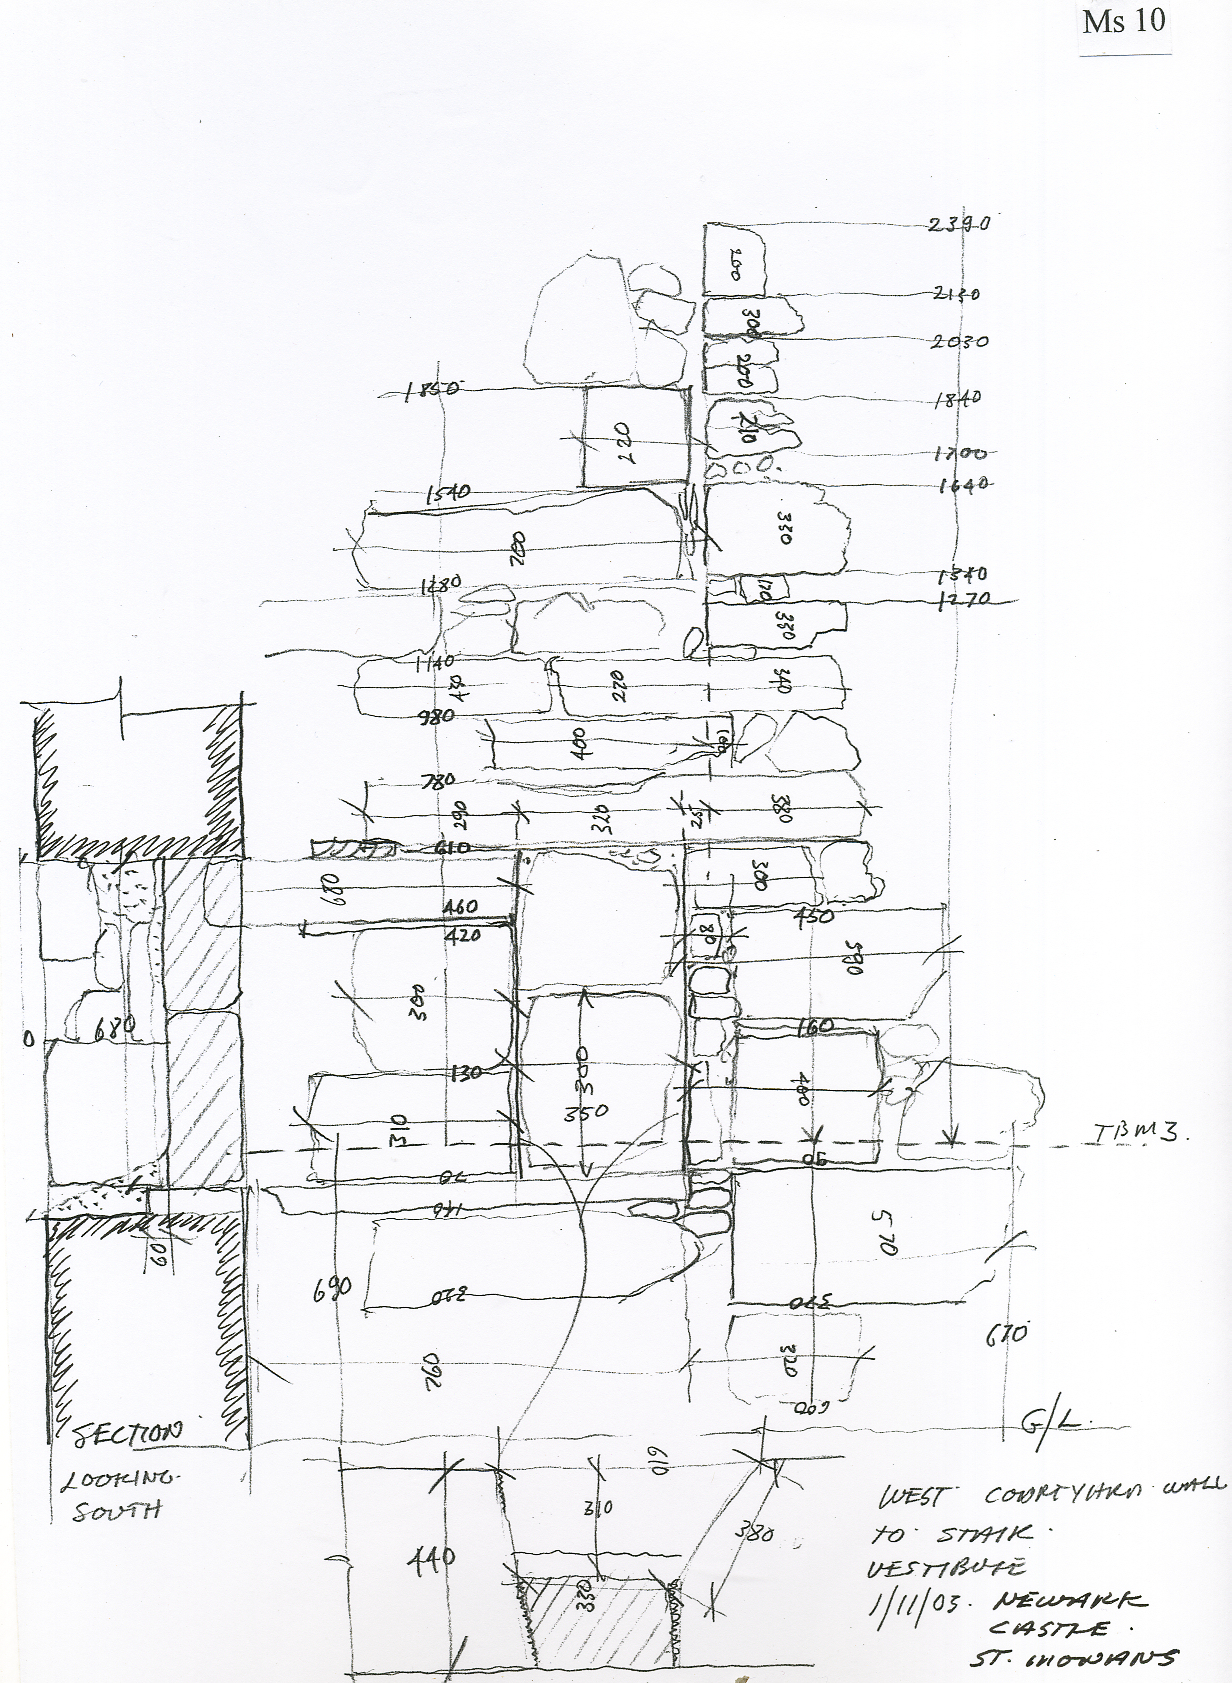 Ms 10
2390
200
2130
300
2030
200
1850
1840
220
210
1700
1540
1640
700
330
1280
1340
170
1270
330
1140
430
220
340
980
400
100
780
290
320
25
380
610
680
300
460
450
420
80
590
300
160
680
0
130
300
400
350
310
TBM3.
50
70
140
570
60
690
320
370
670
760
320
600
G/L.
SECTION
LOOKING
SOUTH
610
310
380
440
330
WEST COURTYARD WALL
TO STAIR
VESTIBULE
1/11/03. NEWARK
CASTLE.
ST. MONANS